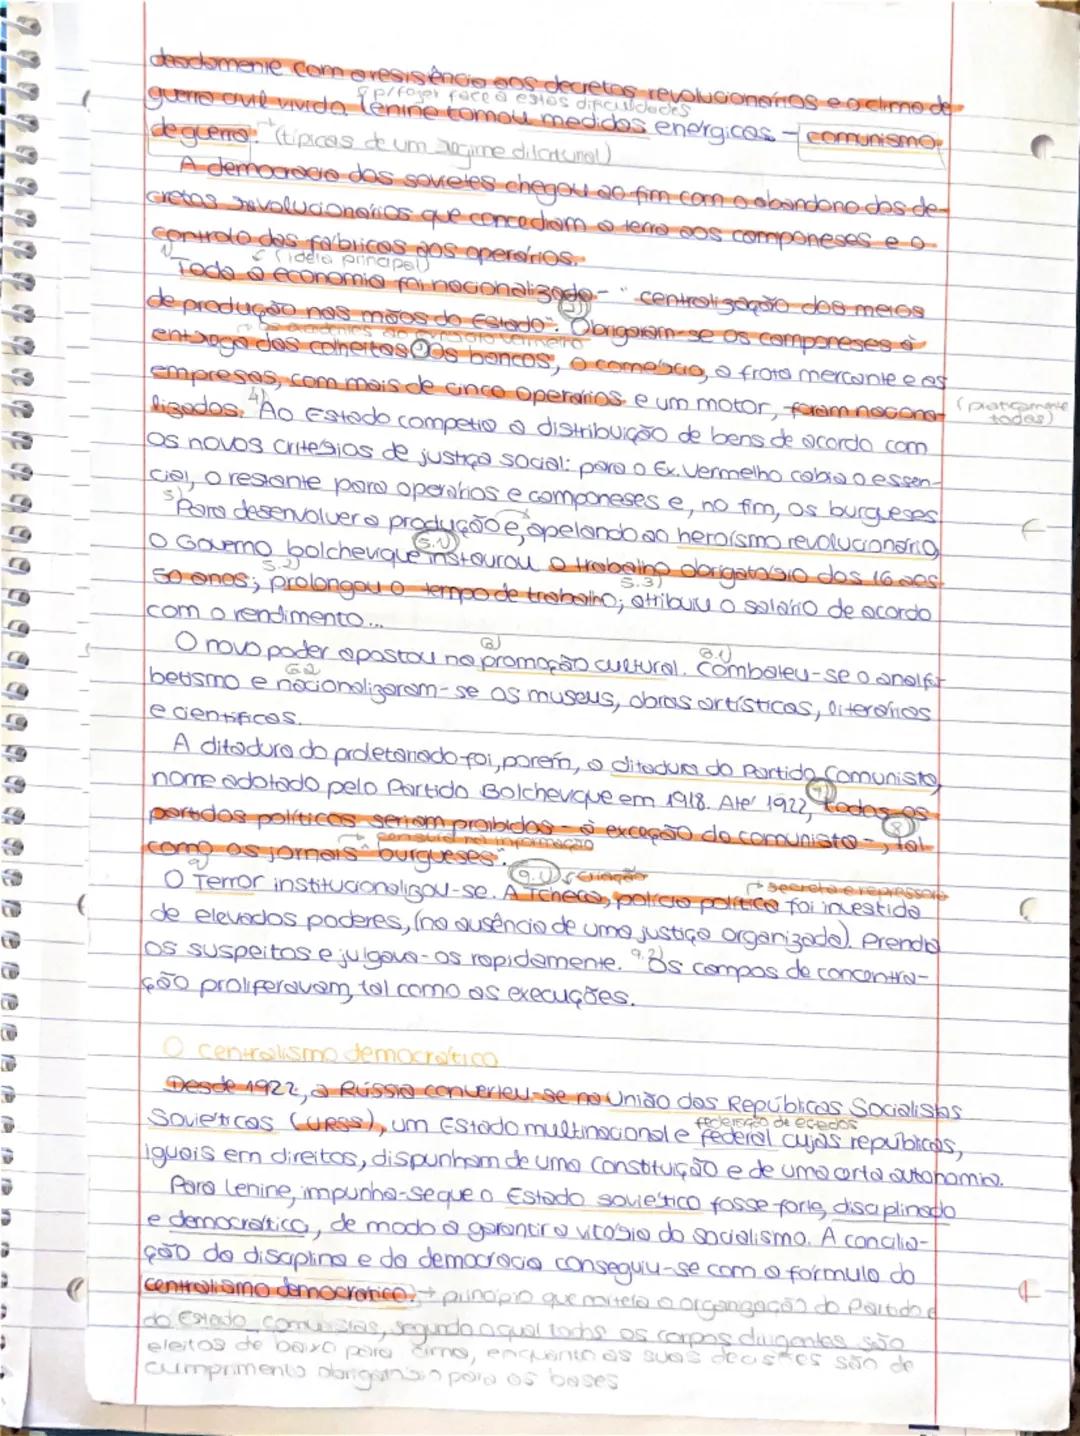 dadamente com a resistência aos decretos revolucionários e o clima de
p/ fazer face a estas dificuldades
guerra civil vivida. Lenine tomou medidas energicas - comunismo
de guerra. (típicas de um regime ditatorial)
A democracia dos sovietes chegou ao fim com o abandono dos de-
cretos revolucionários que concediam a terra aos camponeses e o
controlo das fábricas aos operários.
1) (ideia principal)
Toda a economia foi nacionalizada - "centralização dos meios
de produção nas mãos do Estado". 2) Obrigaram-se os camponeses à
entrega das colheitas. 3) Os bancos, o comércio, a frota mercante e as
empresas, com mais de cinco operários e um motor, foram nacona-
(praticamente todas)
lizados. 4) Ao Estado competia a distribuição de bens de acordo com
os novos critérios de justiça social: para o Ex. Vermelho cabia o essen-
cial, o restante para operários e camponeses e, no fim, os burgueses
5) Para desenvolver a produção e, apelando ao heroísmo revolucionário,
o Governo bolchevique instaurou 5.1) o trabalho obrigatório dos 16 aos
50 anos; 5.2) prolongou o tempo de trabalho; 5.3) atribuiu o salário de acordo
com o rendimento...
O novo poder apostou na 6) promoção cultural. 6.1) Combateu-se o analfa-
betismo e 6.2 nacionalizaram-se os museus, obras artísticas, literárias
e científicas.
A ditadura do proletariado foi, porém, a ditadura do Partido Comunista,
nome adotado pelo Partido Bolchevique em 1918. Até 1922, 7) todos os
partidos políticos seriam proibidos - à exceção do comunista -, 8) tal
→ censura na informação
como os jornais "burgueses".
9) O Terror institucionalizou-se. 9.1) criação A Tcheca, polícia política → secreta e repressora foi investida
de elevados poderes, (na ausência de uma justiça organizada). Prendia
os suspeitos e julgava-os rapidamente. 9.2) Os campos de concentra-
ção proliferavam, tal como as execuções.
O centralismo democrático
Desde 1922, a Rússia converteu-se na União das Repúblicas Socialistas
Soviéticas (URSS), um Estado multinacional e federal cujas repúblicas,
federação de estados
iguais em direitos, dispunham de uma constituição e de uma certa autonomia.
Para Lenine, impunha-se que o Estado soviético fosse forte, disciplinado
e democrático, de modo a garantir a vitória do socialismo. A concilia-
ção da disciplina e da democracia conseguiu-se com a fórmula do
centralismo democrático. → princípio que norteia a organização do Partido e
do Estado comunistas, segundo o qual todos os corpos dirigentes são
eleitos de baixo para cima, enquanto as suas decisões são de
cumprimento obrigatório para as bases